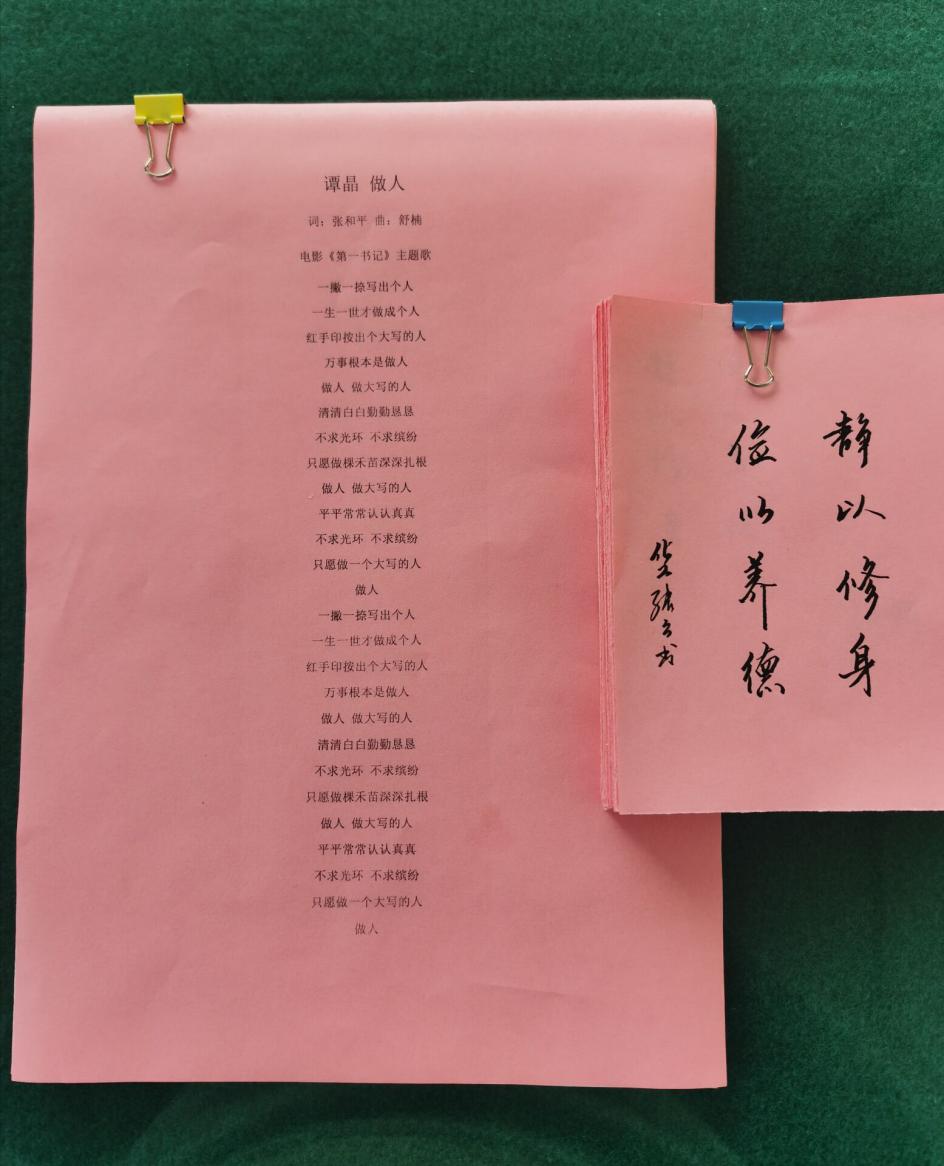 谭晶 做人
词：张和平 曲：舒楠
电影《第一书记》主题歌
一撇一捺写出个人
一生一世才做成个人
红手印按出个大写的人
万事根本是做人
做人 做大写的人
清清白白勤勤恳恳
不求光环 不求缤纷
只愿做棵禾苗深深扎根
做人 做大写的人
平平常常认认真真
不求光环 不求缤纷
只愿做一个大写的人
做人
一撇一捺写出个人
一生一世才做成个人
红手印按出个大写的人
万事根本是做人
做人 做大写的人
清清白白勤勤恳恳
不求光环 不求缤纷
只愿做棵禾苗深深扎根
做人 做大写的人
平平常常认认真真
不求光环 不求缤纷
只愿做一个大写的人
做人
静以修身
俭以养德